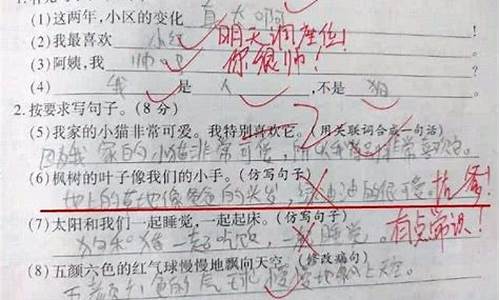 (1)这两年,小区的变化 真大啊
(2)我最喜欢 小红 明天调座位!
(3)阿姨,我 帅吗 你很帅!
(4) 我 是 人 ,不是 狗
2.按要求写句子。(8 分)
(5)我家的小猫非常可爱。我特别喜欢它。(用关联词合成一句话)
因为我家的小猫非常可爱,所以我特别非常喜欢它。
(6)枫树的叶子像我们的小手。(仿写句子)
地上的草地像爸爸的头发,绿油油的很可爱。
(7)太阳和我们一起睡觉,一起起床。(仿写句子)
狗和猫一起吃饭,一起睡觉。 有点常识!
(8)五颜六色的红气球慢慢地飘向天空。(修改病句)
五颜六色的气球慢慢地飘上天空。